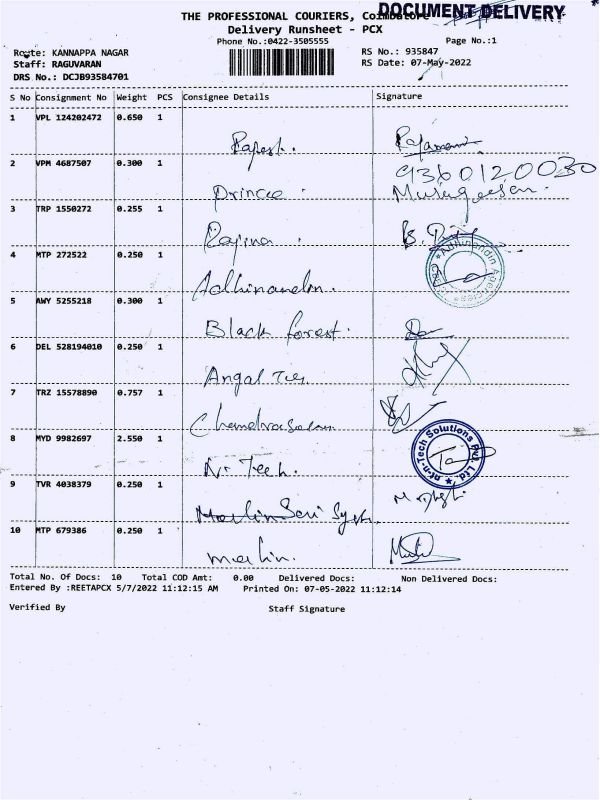 THE PROFESSIONAL COURIERS, Coimbatore
DOCUMENT DELIVERY
Delivery Runsheet - PCX
Phone No.:0422-3505555
Page No.:1
Route: KANNAPPA NAGAR
RS No.: 935847
Staff: RAGUVARAN
RS Date: 07-May-2022
DRS No.: DCJB93584701
S No Consignment No Weight PCS Consignee Details Signature
1 VPL 124202472 0.650 1
Rajesh.
9360120030
2 VPM 4687507 0.300 1
Prince. Murugesan.
3 TRP 1550272 0.255 1
Rajina. B.
4 MTP 272522 0.250 1
Adhinandin Agencies
Adhinandin.
5 AWY 5255218 0.300 1
Black forest.
6 DEL 528194010 0.250 1
Angal
7 TRZ 15578890 0.757 1
Chandraselan
8 MYD 9982697 2.550 1
nt-n-Tech Solutions Pvt. Ltd.
Nt Tech.
9 TVR 4038379 0.250 1
10 MTP 679386 0.250 1
Marlin.
Total No. Of Docs: 10 Total COD Amt: 0.00 Delivered Docs: Non Delivered Docs:
Entered By :REETAPCX 5/7/2022 11:12:15 AM Printed On: 07-05-2022 11:12:14
Verified By Staff Signature